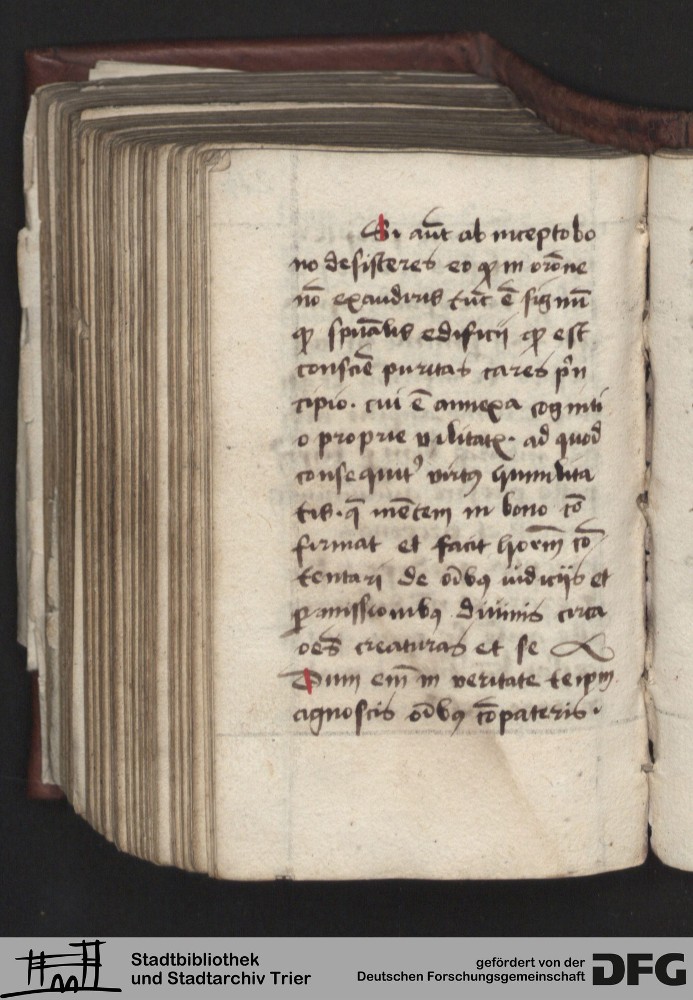 Si aūt ab incepto bo
no desisteres eo qp in orōne
nō exaudiris tūc ē signū
qp spūalis edificii qp est
consciē puritas cares prīn
cipio. cui ē annexa cogniti
o proprie vilitatis. ad quod
consequit' virtus humilita
tis. q̄ mētem in bono cō
firmat et facit hoīem cō
tentari de oībus iudiciis et
pmissionibus diuinis circa
oēs creaturas et se
Dum enī in veritate teipm
agnoscis oībus cōpateris.
Stadtbibliothek
und Stadtarchiv Trier
gefördert von der
Deutschen Forschungsgemeinschaft
DFG